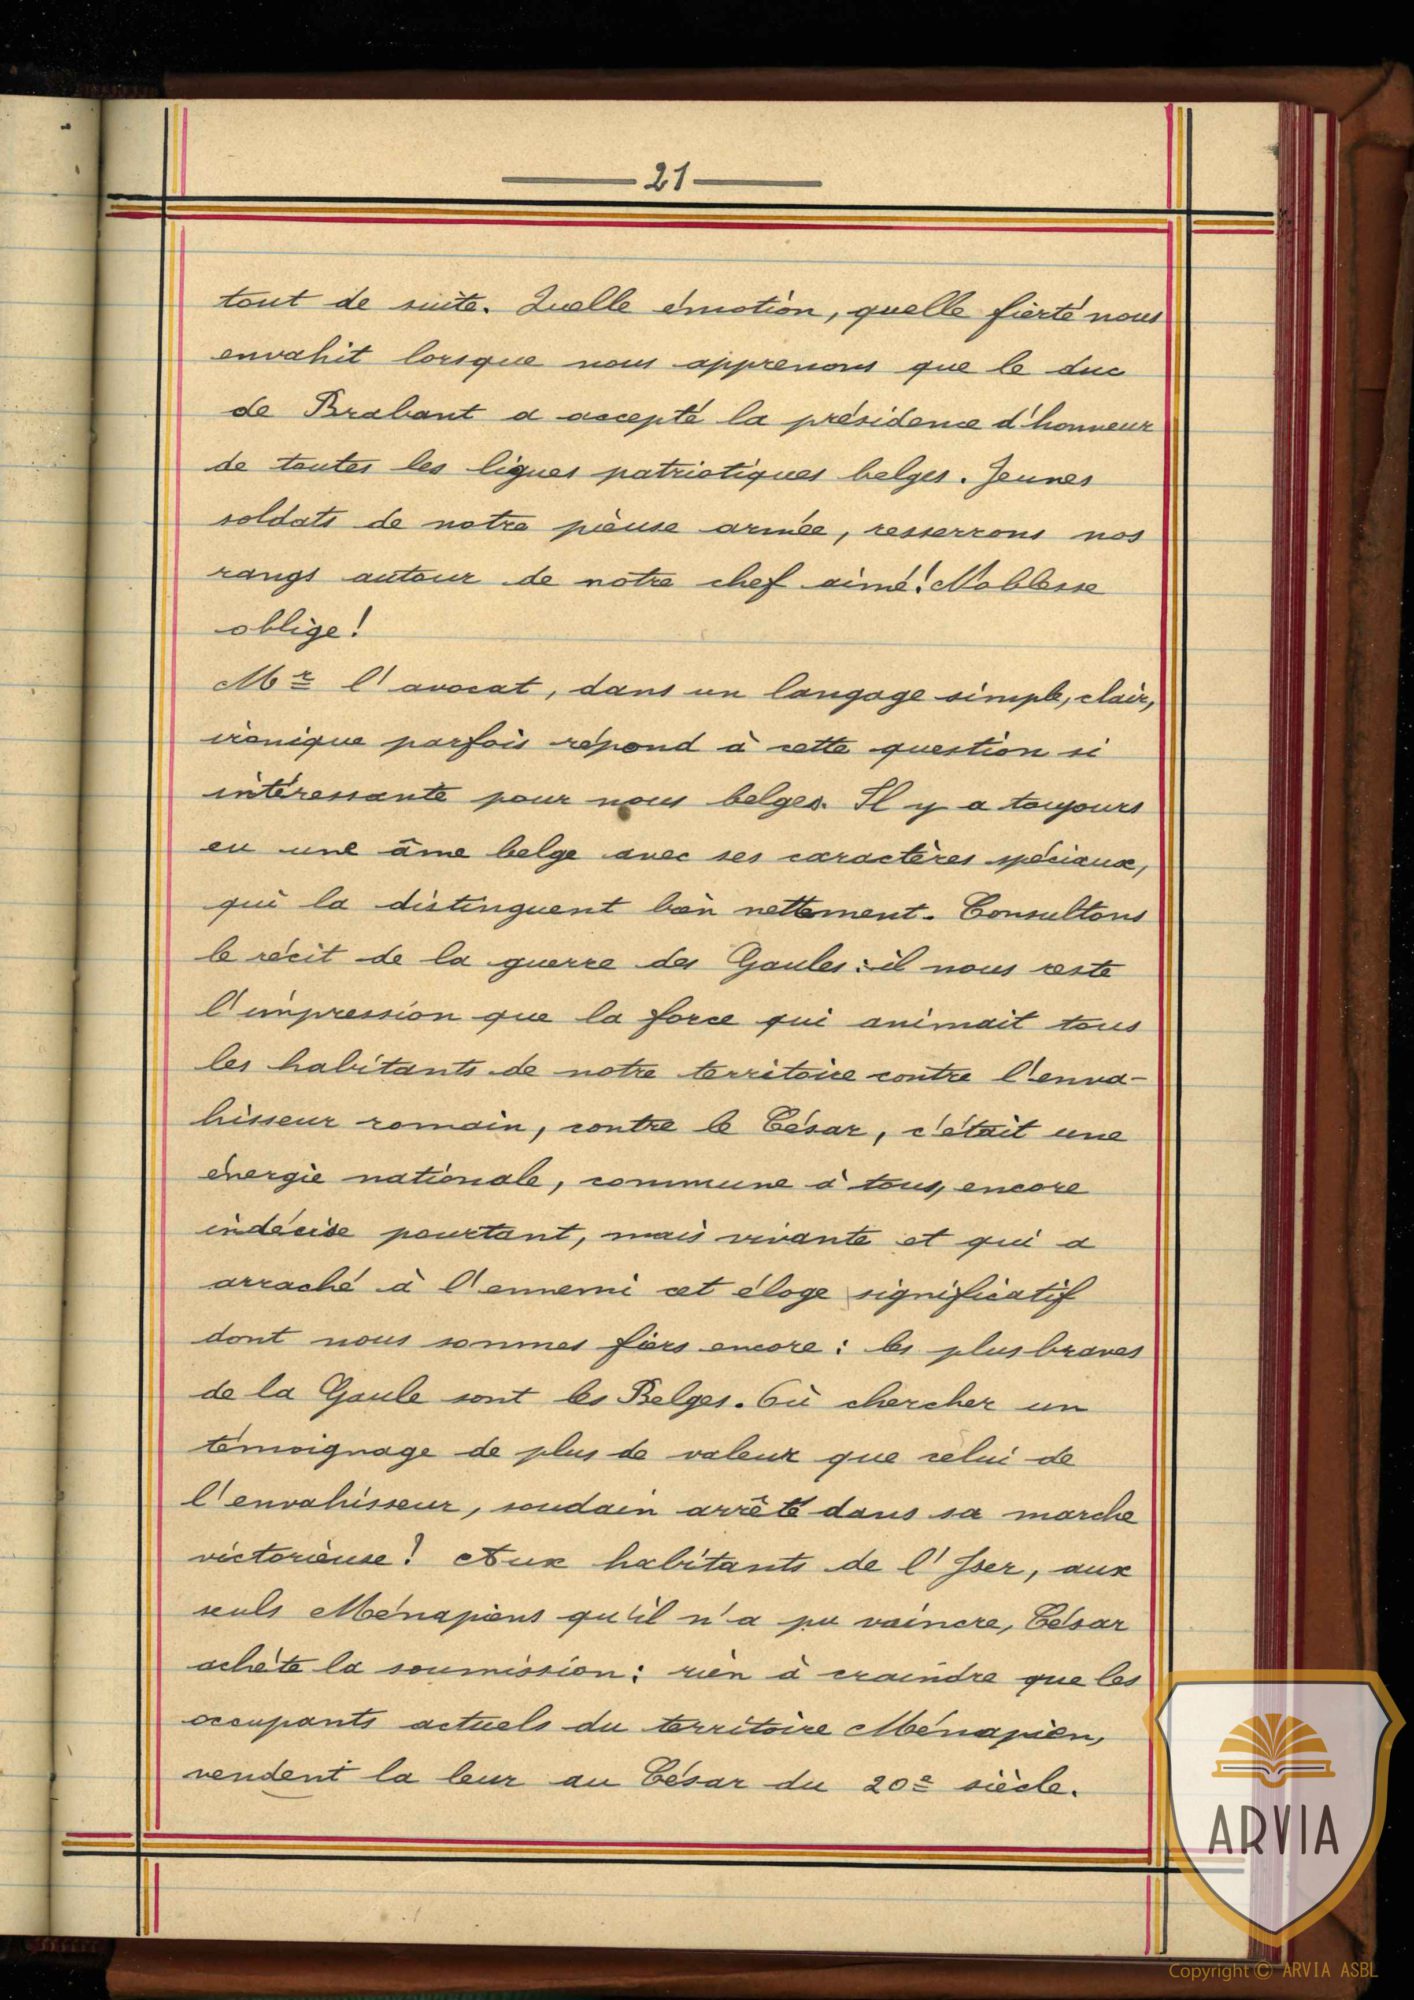 21
tout de suite. Quelle émotion, quelle fierté nous
envahit lorsque nous apprenons que le duc
de Brabant a accepté la présidence d'honneur
de toutes les ligues patriotiques belges. Jeunes
soldats de notre pieuse armée, resserrons nos
rangs autour de notre chef aimé! Noblesse
oblige!
Mr l'avocat, dans un langage simple, clair,
ironique parfois répond à cette question si
intéressante pour nous belges. Il y a toujours
eu une âme belge avec ses caractères spéciaux,
qui la distinguent bien nettement. Consultons
le récit de la guerre des Gaules: il nous reste
l'impression que la force qui animait tous
les habitants de notre territoire contre l'enva-
hisseur romain, contre le César, c'était une
énergie nationale, commune à tous, encore
indécise pourtant, mais vivante et qui a
arraché à l'ennemi cet éloge significatif
dont nous sommes fiers encore: les plus braves
de la Gaule sont les Belges. Où chercher un
témoignage de plus de valeur que celui de
l'envahisseur, soudain arrêté dans sa marche
victorieuse! Aux habitants de l'Yser, aux
seuls Ménapiens qu'il n'a pu vaincre, César
achète la soumission: rien à craindre que les
occupants actuels du territoire Ménapien,
vendent la leur au César du 20e siècle.
ARVIA
Copyright © ARVIA ASBL